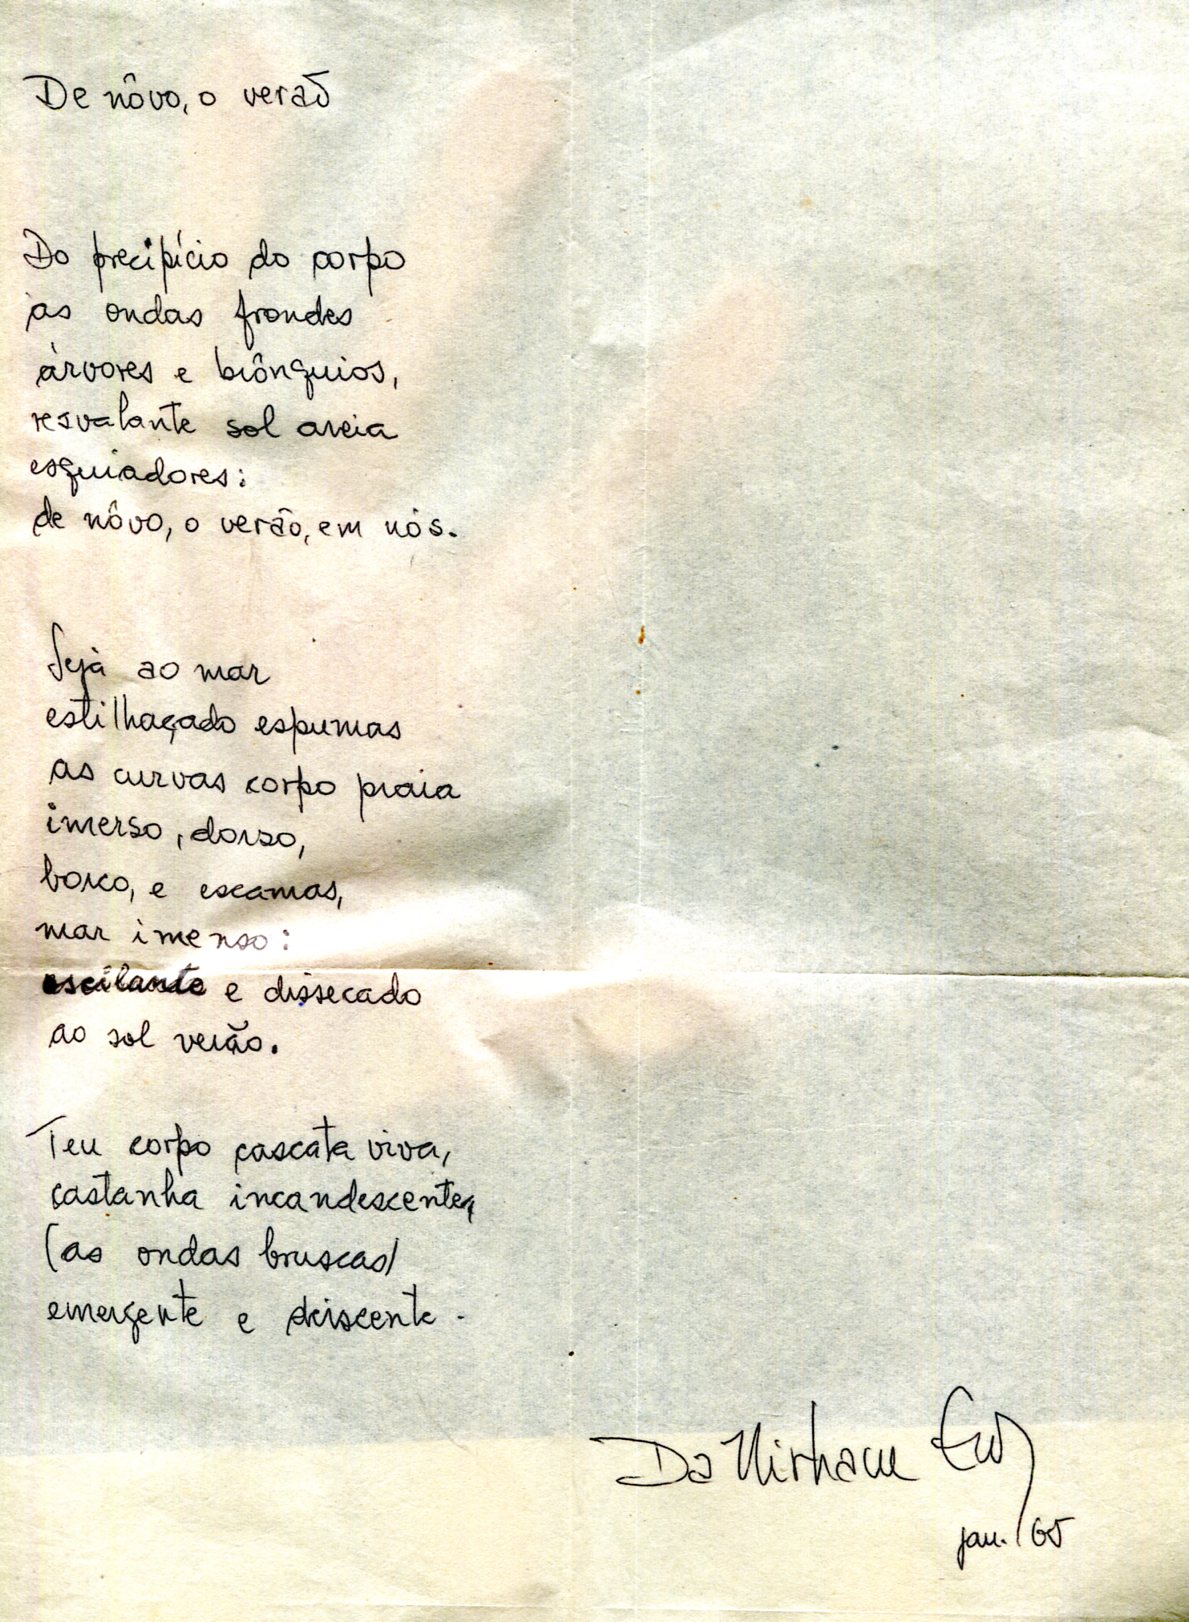 De nôvo, o verão
Do precipício do corpo
às ondas frondes
árvores e brônquios,
resvalante sol areia
esquiadores:
de nôvo, o verão, em nós.
Seja ao mar
estilhaçado espumas
as curvas corpo praia
imerso, dorso,
borco, e escamas,
mar imenso:
oscilante e dissecado
ao sol verão.
Teu corpo cascata viva,
castanha incandescente,
(as ondas bruscas)
emergente e deiscente.
Da Nirham Eros
jan./65